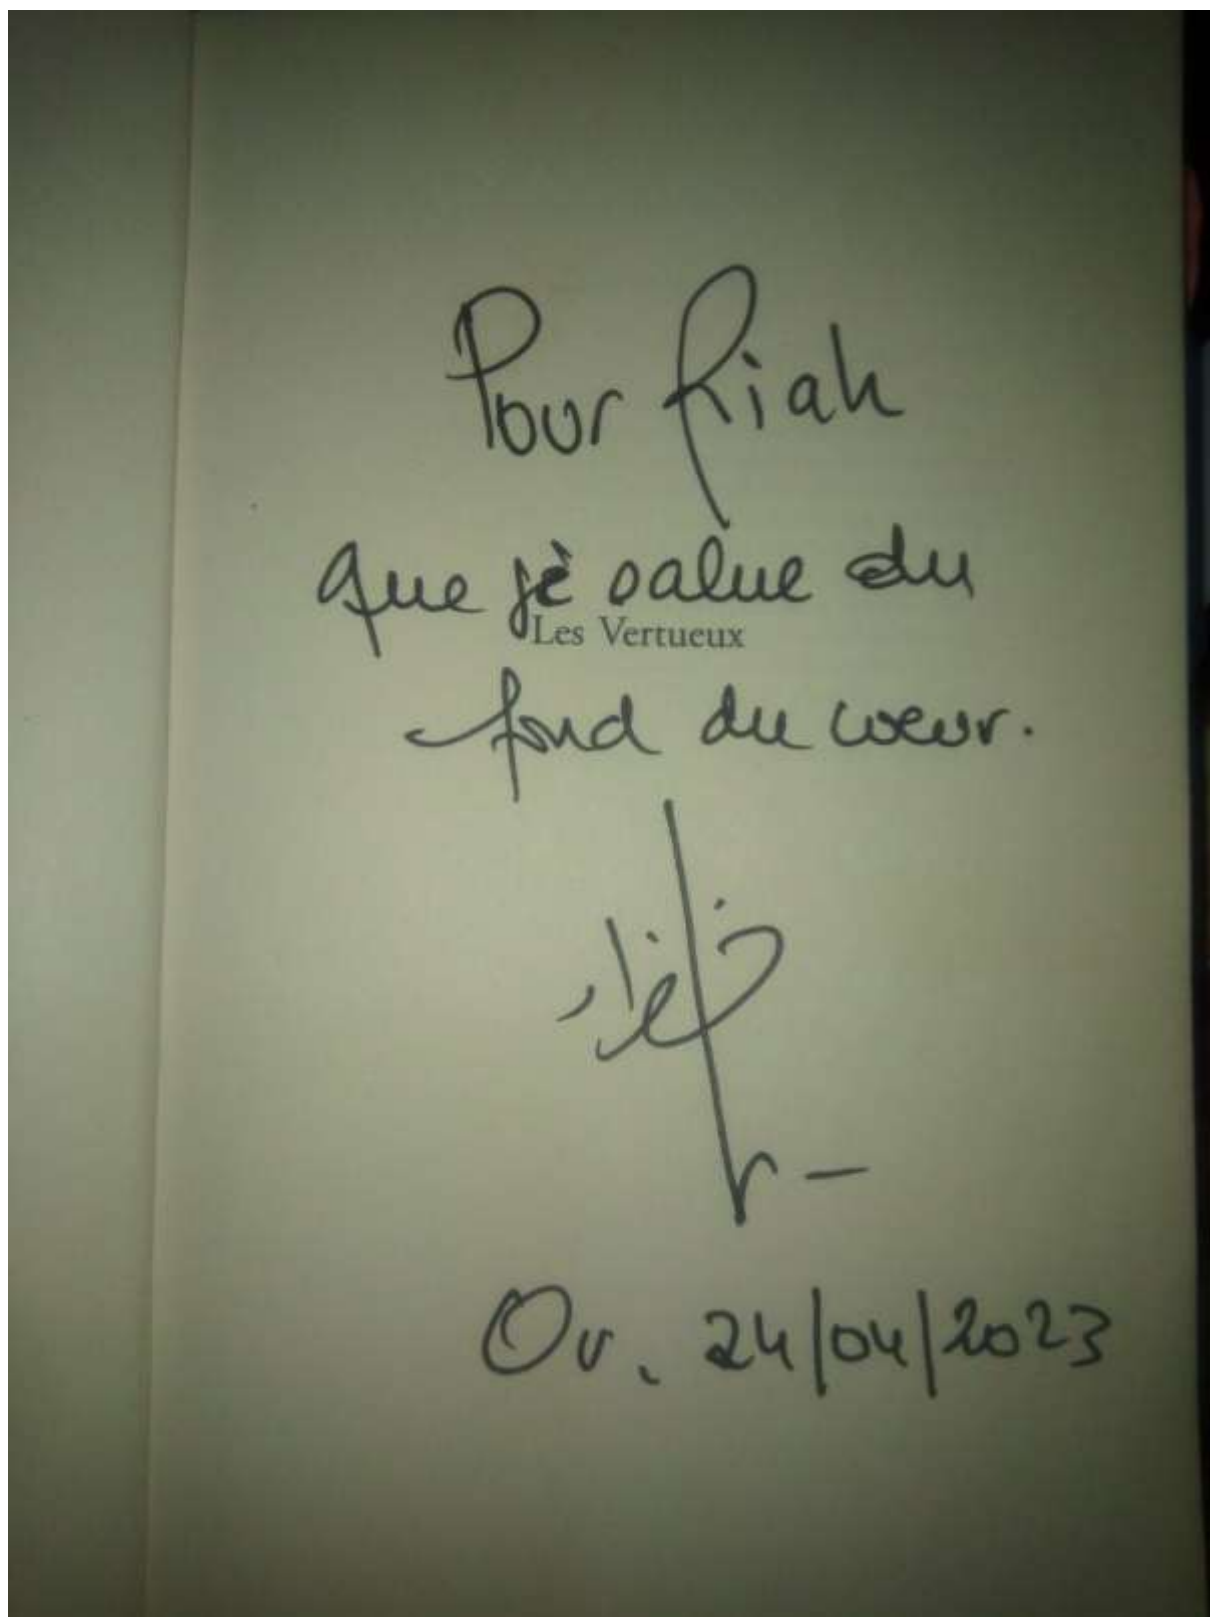 Pour Riah
que je salue du
Les Vertueux
fond du cœur.
Or, 24/04/2023